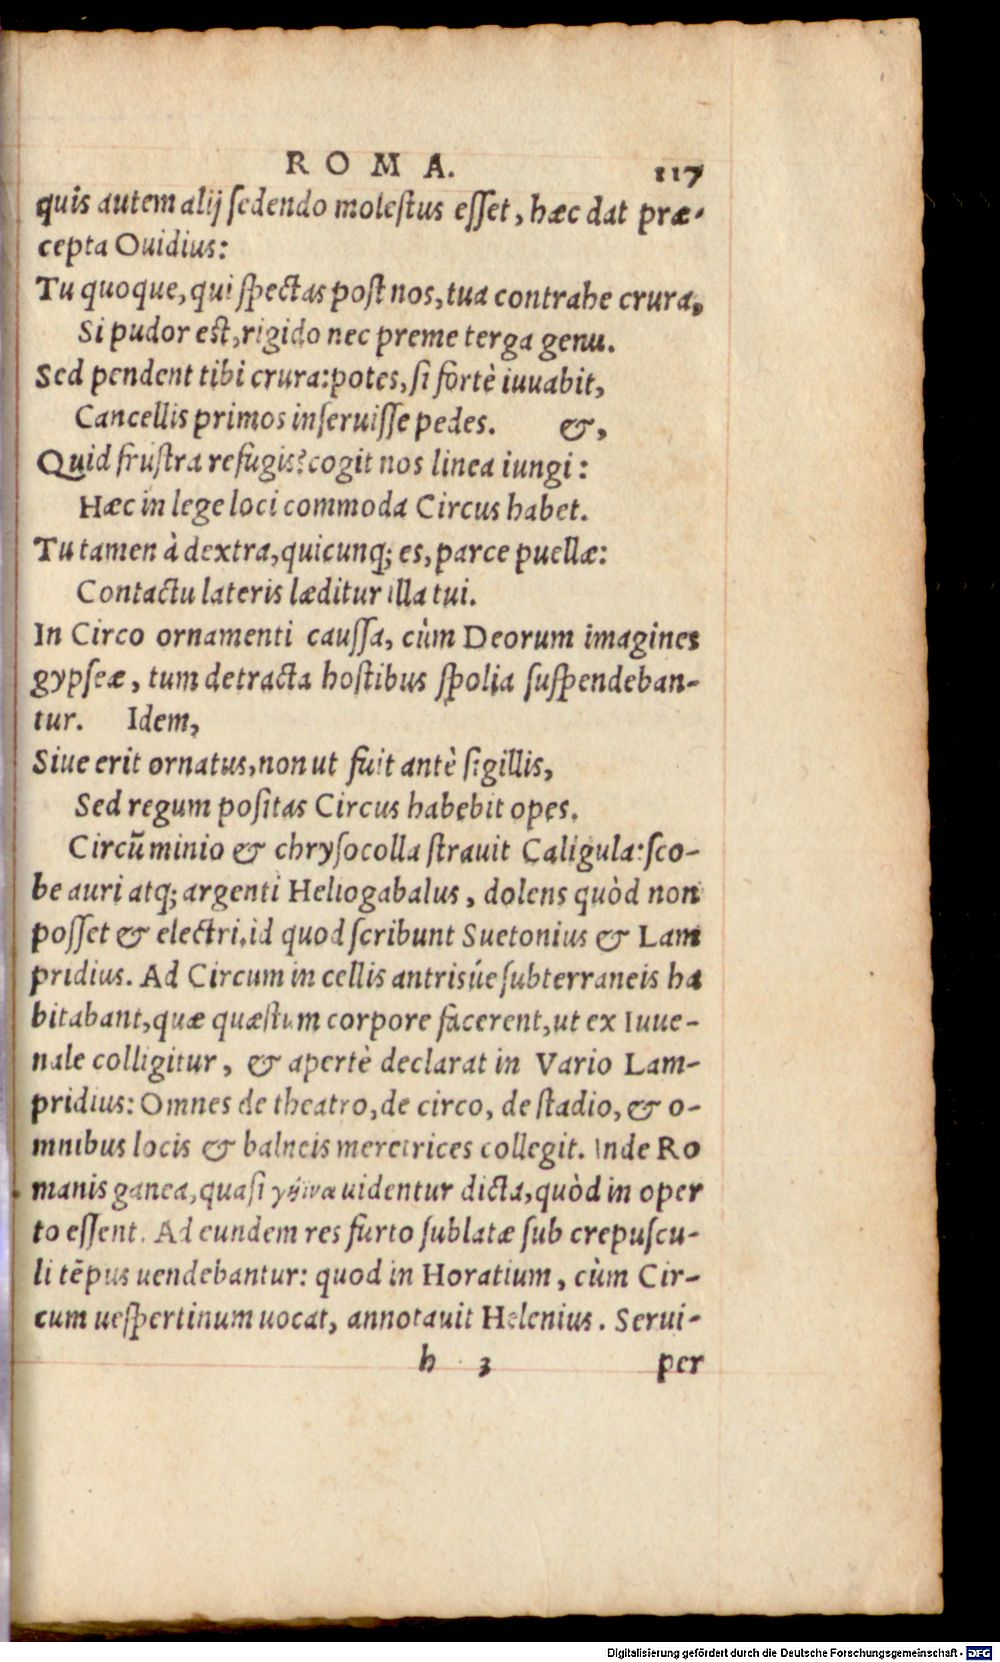 ROMA. 117
quis autem alij ſedendo moleſtus eſſet, hæc dat præ-
cepta Ouidius:
Tu quoque, qui ſpectas poſt nos, tua contrahe crura,
Si pudor eſt, rigido nec preme terga genu.
Sed pendent tibi crura: potes, ſi fortè iuuabit,
Cancellis primos inſeruiſſe pedes. &,
Quid fruſtra refugis? cogit nos linea iungi:
Hæc in lege loci commoda Circus habet.
Tu tamen à dextra, quicunq; es, parce puellæ:
Contactu lateris læditur illa tui.
In Circo ornamenti cauſſa, cùm Deorum imagines
gypſeæ, tum detracta hoſtibus ſpolia ſuſpendeban-
tur. Idem,
Siue erit ornatus, non ut fuit antè ſigillis,
Sed regum poſitas Circus habebit opes.
Circū minio & chryſocolla ſtrauit Caligula: ſco-
be auri atq; argenti Heliogabalus, dolens quòd non
poſſet & electri, id quod ſcribunt Suetonius & Lam
pridius. Ad Circum in cellis antrisúe ſubterraneis ha
bitabant, quæ quæſtum corpore facerent, ut ex Iuue-
nale colligitur, & apertè declarat in Vario Lam-
pridius: Omnes de theatro, de circo, de ſtadio, & o-
mnibus locis & balneis meretrices collegit. Inde Ro
manis ganea, quaſi uidentur dicta, quòd in oper
to eſſent. Ad eundem res furto ſublatæ ſub crepuſcu-
li tēpus uendebantur: quod in Horatium, cùm Cir-
cum ueſpertinum uocat, annotauit Helenius. Serui-
h 3 per
Digitalisierung gefördert durch die Deutsche Forschungsgemeinschaft - DFG